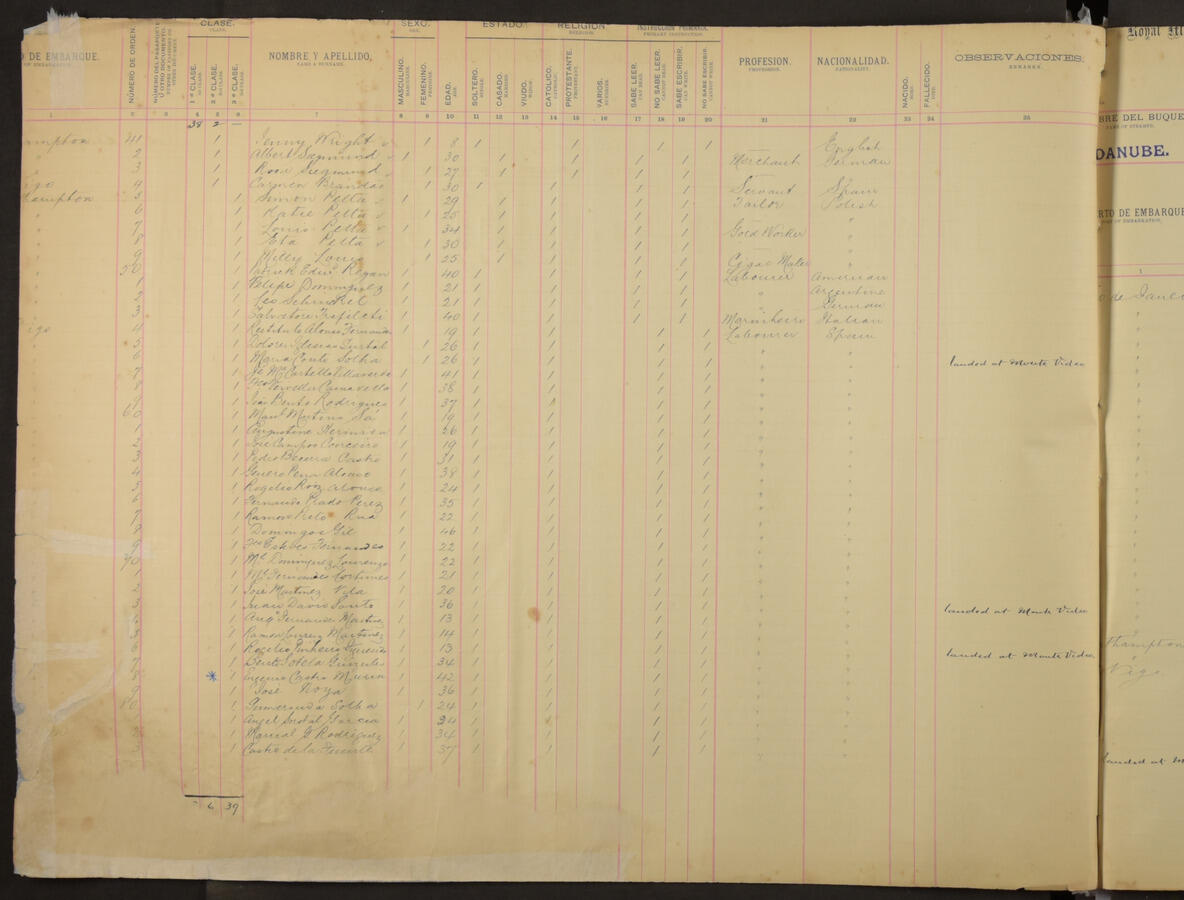 CLASE. SEXO. ESTADO. RELIGION INSTRUCCION PRIMARIA. Royal
DE EMBARQUE. NÚMERO DE ORDEN. 1ª CLASE. 2ª CLASE. 3ª CLASE. NOMBRE Y APELLIDO, MASCULINO. FEMENINO. EDAD. SOLTERO. CASADO. VIUDO. CATOLICO. PROTESTANTE. VARIOS. SABE LEER. NO SABE LEER. SABE ESCRIBIR. NO SABE ESCRIBIR. PROFESION. NACIONALIDAD. NACIDO. FALLECIDO. OBSERVACIONES.
NAME & SURNAME. PROFESSION. NATIONALITY. REMARKS.
1 2 3 4 5 6 7 8 9 10 11 12 13 14 15 16 17 18 19 20 21 22 23 24 25
38 2 —
ampton 41 1 Jenny Wright 1 8 1 1 1 1 English
" 2 1 Albert Siegmund 1 30 1 1 1 1 Merchant German
" 3 1 Rosa Siegmund 1 27 1 1 1 1 "
Vigo 4 1 Carmen Brandao 1 30 1 1 1 1 Servant Spain
hampton 5 1 Simon Pelta 1 29 1 1 1 Tailor Polish
" 6 1 Katie Pelta 1 25 1 1 1 " "
" 7 1 Louis Pelta 1 34 1 1 1 Gold Worker "
" 8 1 Eta Pelta 1 30 1 1 1 " "
" 9 1 Milly 1 25 1 1 1 Cigar Maker "
" 50 1 Patrick Edwd Regan 1 40 1 1 1 1 Labourer American
" 1 1 Felipe Dominguez 1 21 1 1 1 1 " Argentine
" 2 1 Leo 1 21 1 1 1 1 " German
" 3 1 Salvatore 1 40 1 1 1 1 Marinheiro Italian
Vigo 4 1 Restituto Alonso Fernandez 1 19 1 1 1 1 Labourer Spain
" 5 1 Dolores Iglesias 1 26 1 1 1 1 " "
" 6 1 Maria Conto Sotha 1 26 1 1 1 1 " " landed at Monte Video
" 7 1 Je Ma Castello Villaverde 1 41 1 1 1 1 " "
" 8 1 Fco 1 38 1 1 1 1 " "
" 9 1 João Bento Rodrigues 1 37 1 1 1 1 " "
" 60 1 Manl Martins Sá 1 19 1 1 1 1 " "
" 1 1 Augustine 1 26 1 1 1 1 " "
" 2 1 José Campos 1 19 1 1 1 1 " "
" 3 1 Pedro Becerra Castro 1 31 1 1 1 1 " "
" 4 1 Genero Pena Alonso 1 38 1 1 1 1 " "
" 5 1 Rogelio Roz Alonso 1 24 1 1 1 1 " "
" 6 1 Fernando Prado Perez 1 35 1 1 1 1 " "
" 7 1 Ramon Prieto Rua 1 22 1 1 1 1 " "
" 8 1 Domingos Gil 1 46 1 1 1 1 " "
" 9 1 Fco Esteves Fernandes 1 22 1 1 1 1 " "
" 70 1 Ml Dominguez Lourenzo 1 22 1 1 1 1 " "
" 1 1 Ml Fernandes 1 21 1 1 1 1 " "
" 2 1 José Martinez Vila 1 20 1 1 1 1 " "
" 3 1 Juan Davis Santo 1 36 1 1 1 1 " " landed at Monte Video
" 4 1 Fernandez Martinez 1 13 1 1 1 1 " "
" 5 1 Ramon Martinez 1 14 1 1 1 1 " "
" 6 1 Rogelio 1 13 1 1 1 1 " " landed at Monte Video
" 7 1 Benito Sotela 1 34 1 1 1 1 " "
" 8 * 1 Eugenio Castro 1 42 1 1 1 1 " "
" 9 1 José Noya 1 36 1 1 1 1 " "
" 80 1 Sotha 1 24 1 1 1 1 " "
" 1 1 Angel Garcia 1 24 1 1 1 1 " "
" 2 1 Marcial G Rodriguez 1 34 1 1 1 1 " "
" 3 1 Castro de la Fuente 1 37 1 1 1 1 " "
- 6 39
BRE DEL BUQUE
NAME OF STEAMER.
DANUBE.
RTO DE EMBARQUE
1
o de Janei
thampton
Vigo
landed at M